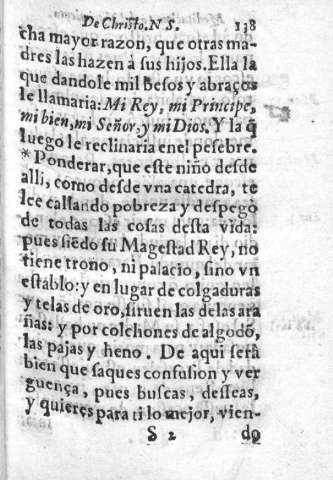 De Christo. N S. 138
cha mayor razon, que otras ma-
dres las hazen à sus hijos. Ella la
que dandole mil besos y abraços
le llamaria: Mi Rey, mi Principe,
mi bien, mi Señor, y mi Dios. Y la q̃
luego le reclinaria enel pesebre.
* Ponderar, que este niño desde
alli, como desde vna catedra, te
lee callando pobreza y despego
de todas las cosas desta vida:
pues siẽdo su Magestad Rey, no
tiene trono, ni palacio, sino vn
establo: y en lugar de colgaduras
y telas de oro, siruen las delas ara
ñas: y por colchones de algodõ,
las pajas y heno. De aqui serà
bien que saques confusion y ver
guença, pues buscas, desseas,
y quieres para ti lo mejor, vien-
S 2 do